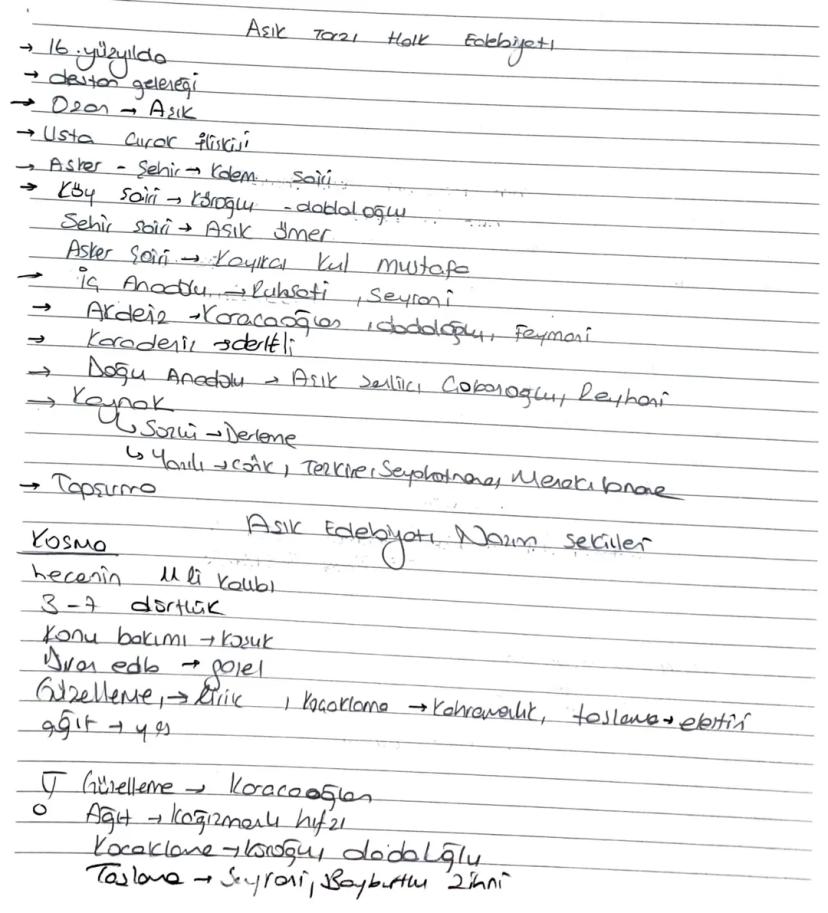 Aşık Tarzı Halk Edebiyatı
→ 16. yüzyılda
→ destan geleneği
→ Ozan → Aşık
→ Usta çırak ilişkisi
→ Asker - Şehir → Kalem şairi
→ Köy şairi → Köroğlu - dadaloğlu
Şehir şairi → Aşık Ömer
Asker şairi → Kayıkçı Kul Mustafa
→ İç Anadolu → Ruhsati, Seyrani
→ Akdeniz → Karacaoğlan, dadaloğlu, Feymani
→ Karadeniz → dertli
→ Doğu Anadolu → Aşık Çobanoğlu, Reyhani
→ Kaynak
↳ Sözlü → Derleme
↳ Yazılı → cönk, Tezkire, Seyahatname, Menakıbname
→ Tapşırma
Aşık Edebiyatı Nazım Şekilleri
KOŞMA
hecenin 11 li kalıbı
3-7 dörtlük
Konu bakımı → koşuk
Divan edb → gazel
Güzelleme, → lirik, koçaklama → kahramanlık, taşlama → eleştiri
ağıt → yas
Güzelleme → Karacaoğlan
Ağıt → Kağızmanlı hıfzı
Koçaklama → Köroğlu, dadaloğlu
Taşlama → Seyrani, Bayburtlu Zihni